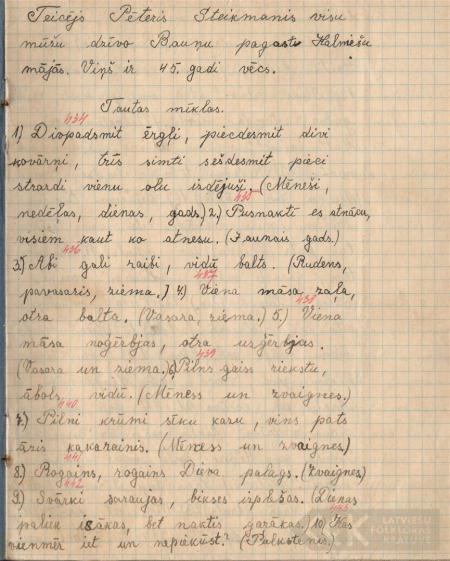 Teicējs Pēteris Steikmanis visu
mūžu dzīvo Bauņu pagastu Kalmēšu
mājās. Viņš ir 45. gadi vēcs.
Tautas mīklas.
434
1) Divpadsmit ērgļi, piecdesmit divi
kovārņi, trīs simti sešdesmit pieci
strazdi vienu olu izdējuši. (Mēneši,
435
nedēļas, dienas, gads.) 2.) Pusnaktī es atnācu,
visiem kaut ko atnesu. (Jaunais gads.)
436
3.) Abi gali raibi, vidū balts. (Rudens,
437
pavasaris, ziema.) 4.) Viena māsa zaļa,
438
otra balta. (Vasara, ziema.) 5.) Viena
māsa noģērbjas, otra uzģērbjas.
439
(Vasara un ziema.) 6) Pilns gaiss riekstu,
ābols vidū. (Mēness un zvaignes.)
440
7.) Pilni krūmi sīku kazu, vins pats
āzis kakarainis. (Mēness un zvaignes)
441
8.) Rogains, rogains Dieva palags. (Zvaignes)
442
9.) Svārki saraujas, bikses izplēšas. (Dienas
443
paliek īsākas, bet naktis garākas.) 10) Kas
vienmēr iet un nepiekūst? (Pulkstenis.)
LATVIEŠU
FOLKLORAS
KRĀTUVE